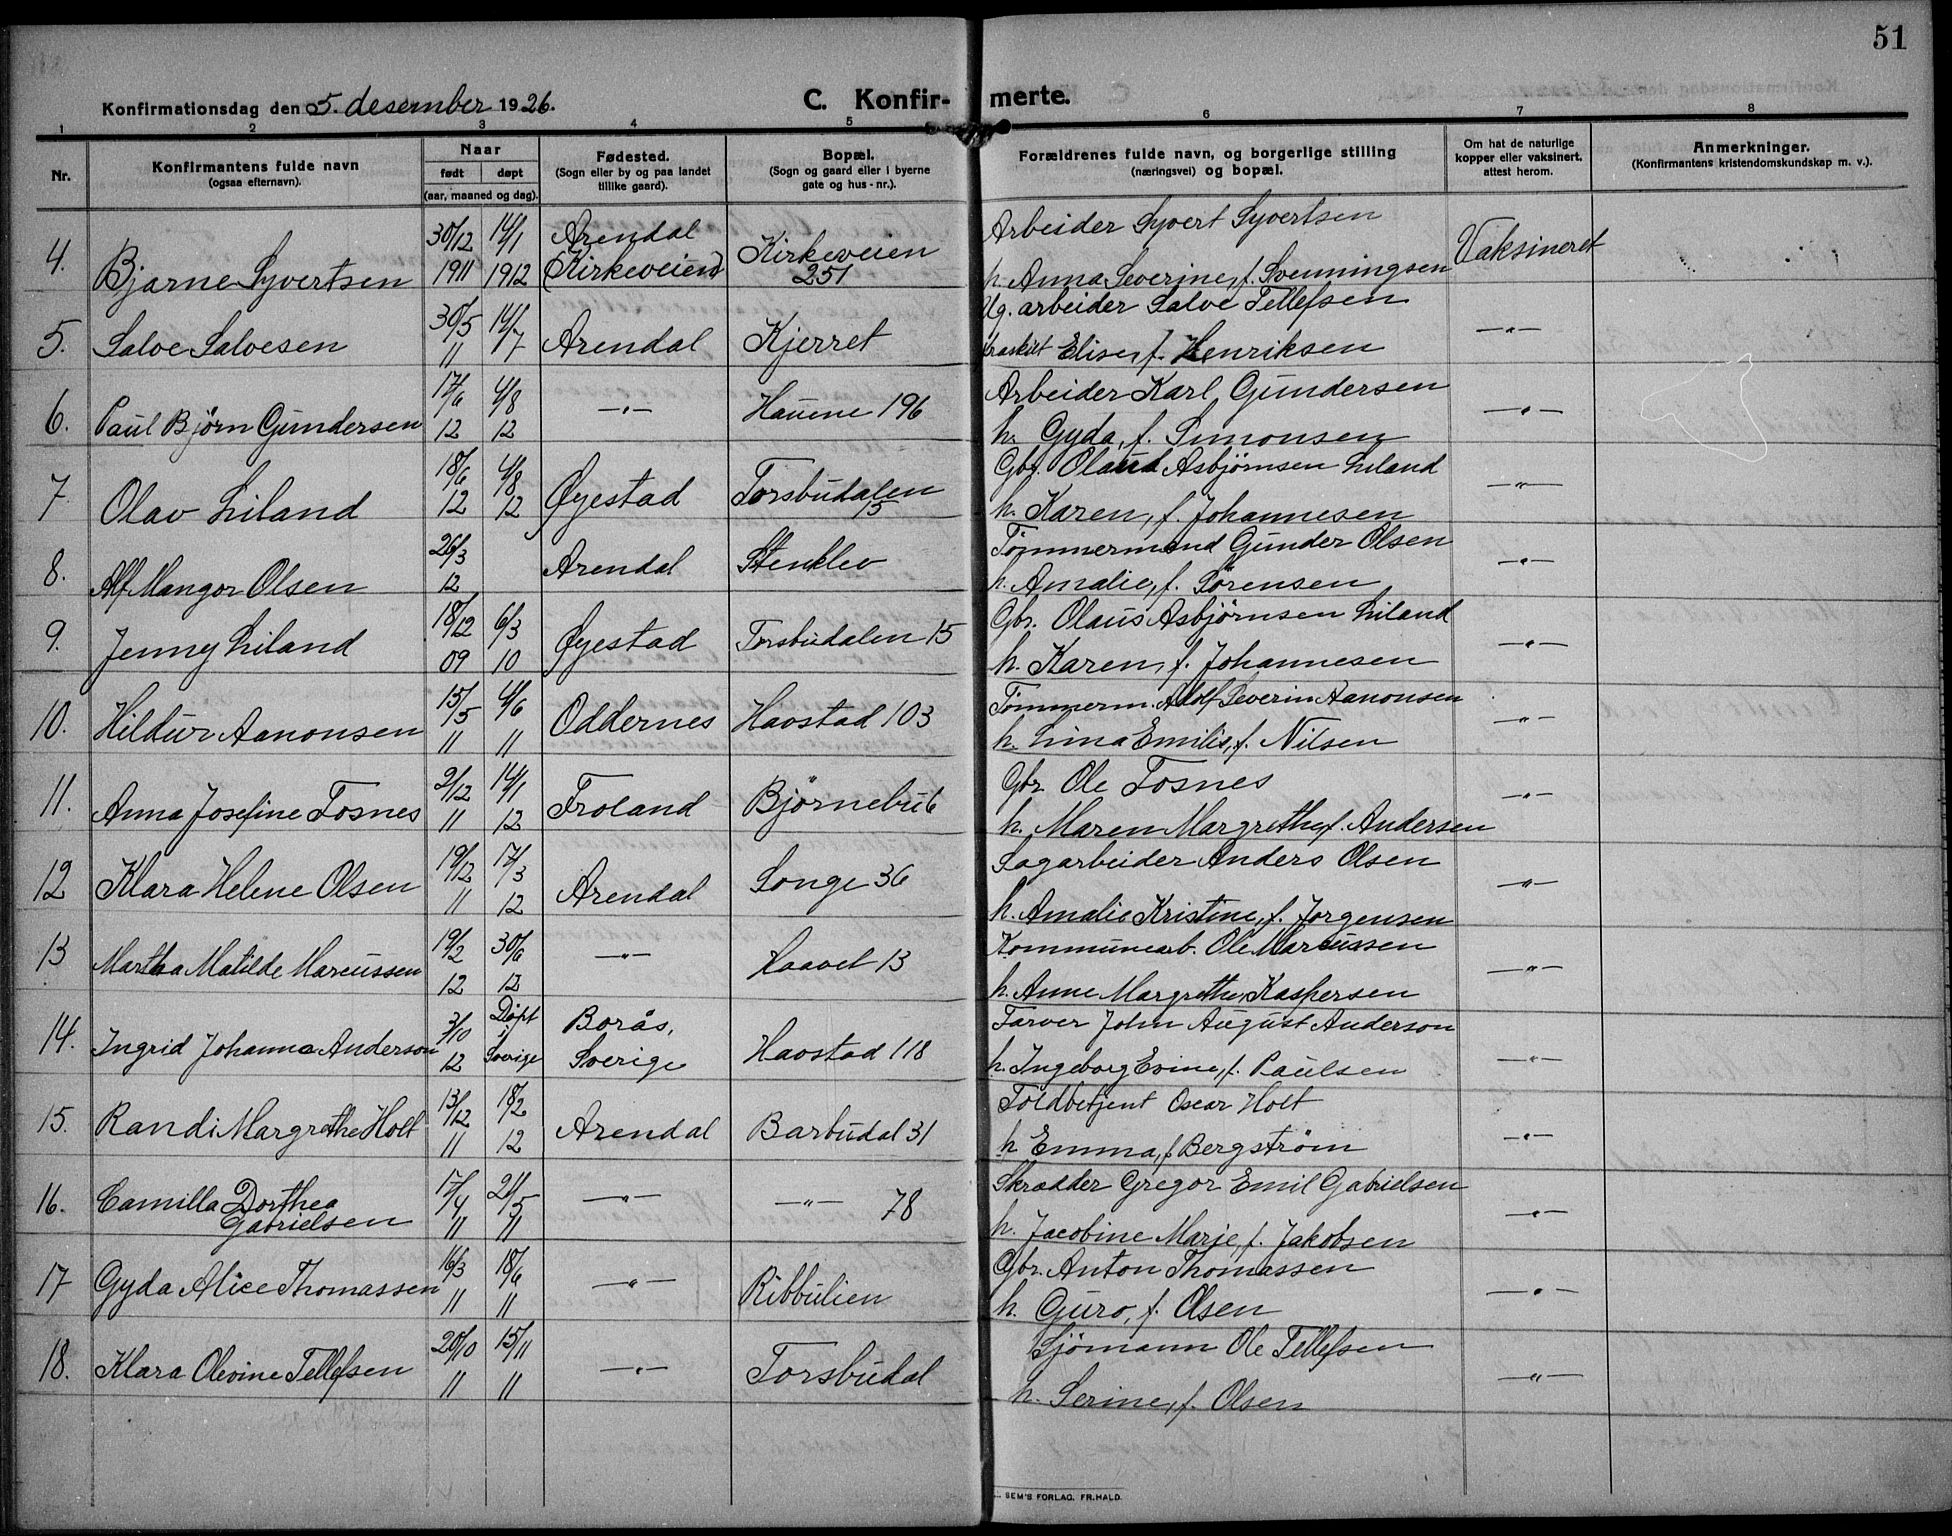 51
Konfirmationsdag den 5. desember 1926.
C. Konfir- merte.
1 2 3 4 5 6 7 8
Nr.
Konfirmantens fulde navn
(ogsaa efternavn).
Naar
født døpt
(aar, maaned og dag).
Fødested.
(Sogn eller by og paa landet
tillike gaard).
Bopæl.
(Sogn og gaard eller i byerne
gate og hus-nr.).
Forældrenes fulde navn, og borgerlige stilling
(næringsvei) og bopæl.
Om hat de naturlige
kopper eller vaksinert.
attest herom.
Anmerkninger.
(Konfirmantens kristendomskundskap m. v.).
30/12 14/1 Arendal Arbeider Syvert Syvertsen
4. Bjarne Syvertsen 1911 1912 (Kirkeveien) Kirkeveien 251 h. Anna Severine, f. Svenningsen Vaksineret
30/5 14/7 Ug. arbeider Salve Tellefsen
5. Salve Salvesen 11 Arendal Kjerret fraskilt Elise, f. Henriksen —"—
17/6 4/8 Arbeider Karl Gundersen
6. Paul Bjørn Gundersen 12 12 —"— Hauene 196 h. Gyda, f. Simonsen —"—
18/6 4/8 Gbr. Olaus Asbjørnsen Liland
7. Olav Liland 12 12 Øyestad Torsbudalen 15 h. Karen, f. Johannesen —"—
26/3 Tømmermand Gunder Olsen
8. Alf Mangor Olsen 12 Arendal Stenklev h. Amalie, f. Sørensen —"—
18/12 6/3 Gbr. Olaus Asbjørnsen Liland
9. Jenny Liland 09 10 Øyestad Torsbudalen 15 h. Karen, f. Johannesen —"—
15/5 4/6 Tømmerm. Adolf Severin Aanonsen
10. Hildur Aanonsen 11 11 Oddernes Havstad 103 h. Lina Emilie, f. Nilsen —"—
2/12 14/1 Gbr. Ole Fosnes
11. Anna Josefine Fosnes 11 12 Froland Bjørnebu 6 h. Maren Margrethe f. Andersen —"—
19/12 17/3 Sagarbeider Anders Olsen
12 Klara Helene Olsen 11 12 Arendal Songe 36 h. Amalie Kristine, f. Jørgensen —"—
19/2 30/6 Kommunearb. Ole Marcussen
13 Martha Matilde Marcussen 12 12 —"— Haavet 13 h. Anne Margrethe, Kaspersen —"—
3/10 Døpt i Borås, Farver John August Anderson
14. Ingrid Johanna Anderson 12 Sverige Sverige Havstad 118 h. Ingeborg Evine, f. Paulsen —"—
13/12 18/2 Toldbetjent Oscar Holt
15. Randi Margrethe Holt 11 12 Arendal Barbudal 31 h Emma, f Bergstrøm —"—
17/4 21/5 Skrædder Gregor Emil Gabrielsen
16. Camilla Dorthea
Gabrielsen 11 11 —"— —"— 78 h. Jacobine Marie, f. Jakobsen —"—
16/3 18/6 Gbr. Anton Thomassen
17 Gyda Alice Thomassen 11 11 —"— Ribbulien h. Guro, f. Olsen —"—
20/10 15/11 Sjømann Ole Tellefsen
18. Klara Olevine Tellefsen 11 11 —"— Torsbudal h. Serine, f. Olsen —"—
SEM'S FORLAG. FR.HALD.